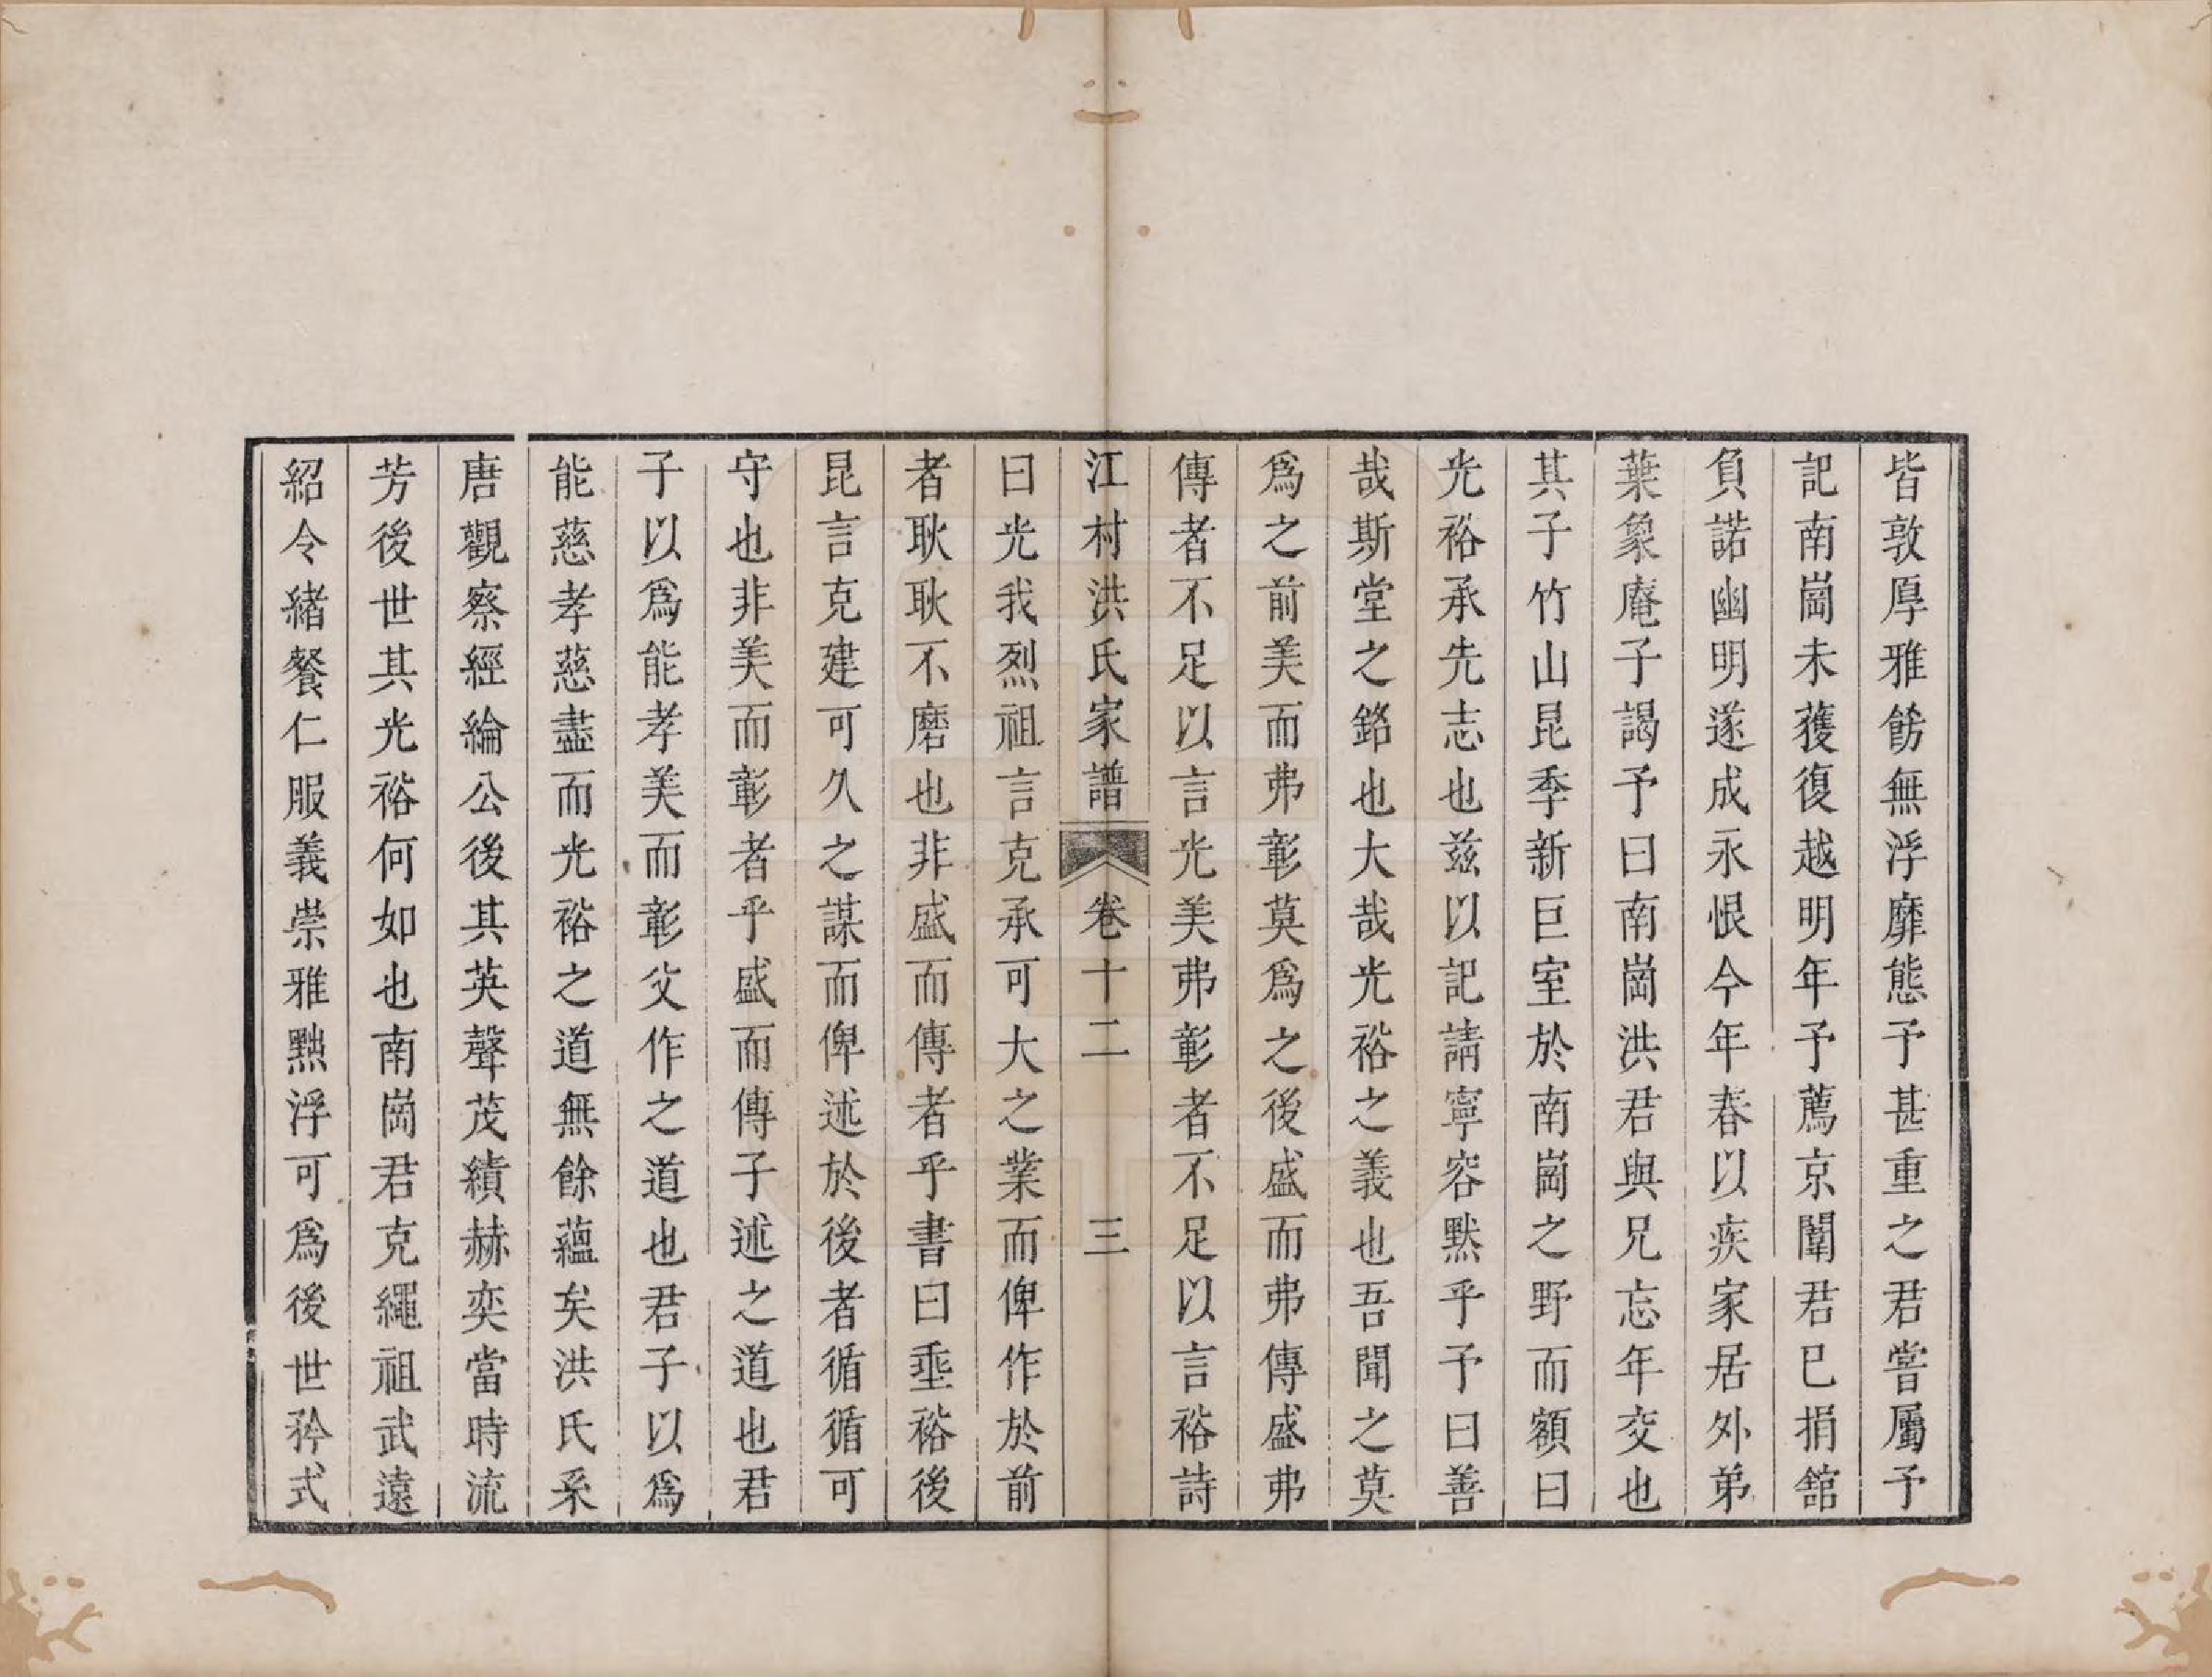 皆敦厚雅飭無浮靡態予甚重之君嘗屬予
記南崗未獲復越明年予薦京闈君已捐舘
負諾幽明遂成永恨今年春以疾家居外弟
葉象庵子謁予曰南崗洪君與兄忘年交也
其子竹山昆季新巨室於南崗之野而額曰
光裕承先志也兹以記請寧容默乎予曰善
哉斯堂之銘也大哉光裕之義也吾聞之莫
爲之前美而弗彰莫爲之後盛而弗傳盛弗
傳者不足以言光美弗彰者不足以言裕詩
江村洪氏家譜 卷十二 三
曰光我烈祖言克承可大之業而俾作於前
者耿耿不磨也非盛而傳者乎書曰垂裕後
昆言克建可久之謀而俾述於後者循循可
守也非美而彰者乎盛而傳子述之道也君
子以爲能孝美而彰父作之道也君子以爲
能慈孝慈盡而光裕之道無餘蘊矣洪氏系
唐觀察經綸公後其英聲茂績赫奕當時流
芳後世其光裕何如也南崗君克繩祖武遠
紹令緒餐仁服義崇雅黜浮可爲後世矜式